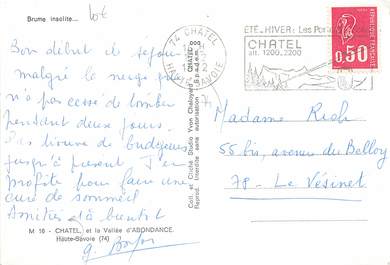 Brume insolite...
Bon début de séjour
malgré la neige
n'a pas cessé de tomber
pendant deux jours.
Pas trouvé de
jusqu'à présent J'en
profite pour faire une
cure de sommeil
Amitiés et à bientôt
M 16 - CHATEL, et la Vallée d'ABONDANCE.
Haute-Savoie (74)
Coll. et Cliché Studio Yvon Chaloyard CHATEL
Reprod. interdite sans autorisation
74 CHATEL
HTE SAVOIE
ÉTÉ-HIVER: Les
CHATEL
alt. 1200_2200
POSTES
RÉPUBLIQUE FRANÇAISE
0,50
Madame Rich
55 bis, avenue du Belloy
78 - Le Vésinet